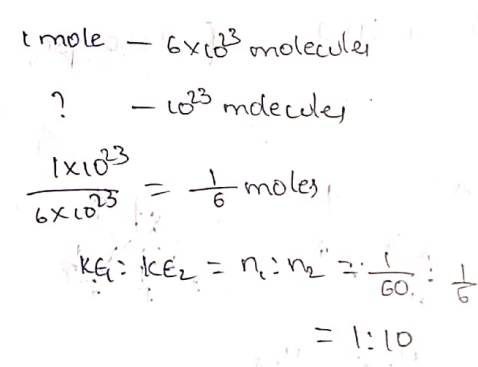 1 mole – 6×10²³ molecules
? – 10²³ molecules
1×10²³ / 6×10²³ = 1/6 moles
KE₁ : KE₂ = n₁ : n₂ = 1/60 : 1/6
= 1:10